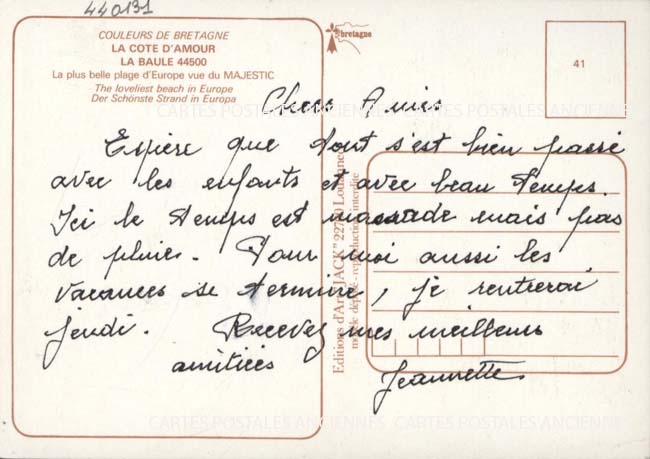 440131
COULEURS DE BRETAGNE
LA COTE D'AMOUR
LA BAULE 44500
La plus belle plage d'Europe vue du MAJESTIC
The loveliest beach in Europe
Der Schönste Strand in Europa
bretagne
41
Chers Amies
Espère que tout s'est bien passé
avec les enfants et avec beau temps.
Ici le temps est maussade mais pas
de pluie. Pour moi aussi les
vacances se termine, je rentrerai
jeudi. Recevez mes meilleurs
amitiés
Jeannette
Editions d'Art "JACK" 22 Loudéac
modèle déposé - reproduction interdite
CARTES POSTALES ANCIENNES CARTES POSTALES ANCIENNES
CARTES POSTALES ANCIENNES CARTES POSTALES ANCIENNES